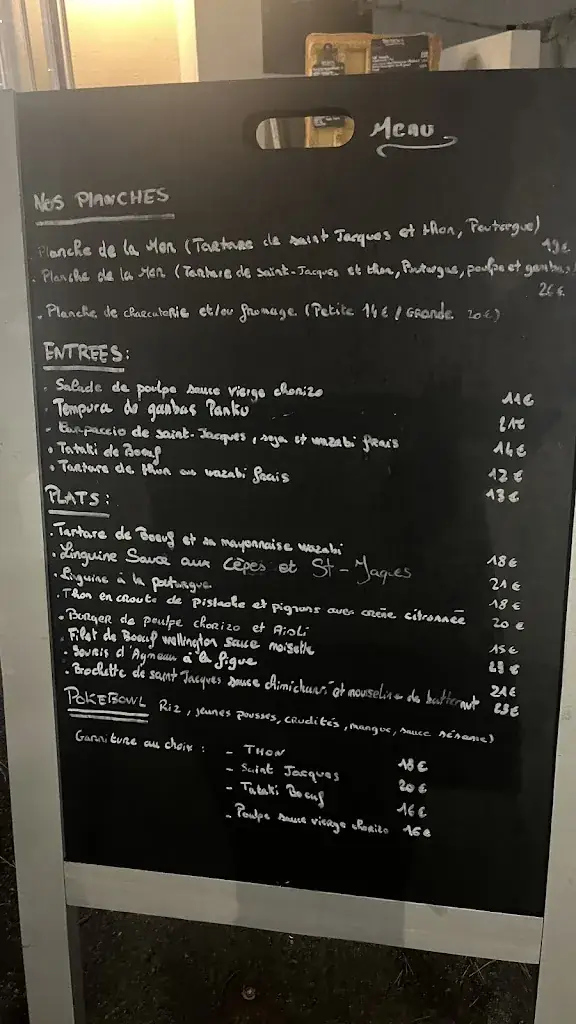 Menu
NOS PLANCHES
Planche de la Mer (Tartare de saint Jacques et thon, Poutargue)
19€
. Planche de la Mer (Tartare de Saint-Jacques et thon, Poutargue, poulpe et gambas)
26€
. Planche de charcuterie et/ou fromage (Petite 14€ / GRANDE 20€)
ENTREES:
. Salade de poulpe sauce vierge chorizo 11€
. Tempura de gambas Panko
. Carpaccio de saint-Jacques, soja et wazabi frais 14€
. Tataki de Boeuf 12€
. Tartare de thon au wazabi frais 13€
PLATS:
. Tartare de Boeuf et sa mayonnaise wazabi 18€
. Linguine Sauce aux Cèpes et St-Jaques 21€
. Linguine à la poutargue 18€
. Thon en croute de pistache et pignons avec crème citronnée 20€
. Burger de poulpe chorizo et Aïoli 15€
. Filet de Boeuf wellington sauce noisette
. Souris d'Agneau à la figue 21€
. Brochette de saint Jacques sauce chimichuri et mouseline de butternut 23€
POKEBOWL Riz, jeunes pousses, crudités, mangue, sauce sésame)
Garniture au choix : - THON 18€
- Saint Jacques 20€
- Tataki Boeuf 16€
- Poulpe sauce vierge chorizo 16€